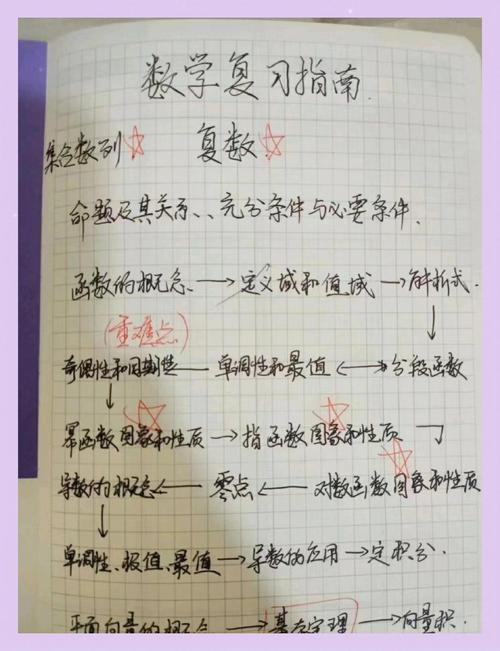 数学复习指南.
集合数列☆ 复数☆
命题及其关系、、充分条件与必要条件.
函数的概念 → 定义域和值域 → 解析式.
↓
(重难点)
奇偶性和周期性 ← 单调性和最值 ↔ 分段函数
↓
幂函数图象和性质 → 指函数图象和性质
导数的概念 ← 零点 ← 对数函数图象和性质
↓
单调性、极值、最值 → 导数的应用 → 定积分.
平面向量的概念 → 基本定理 → 向量积.